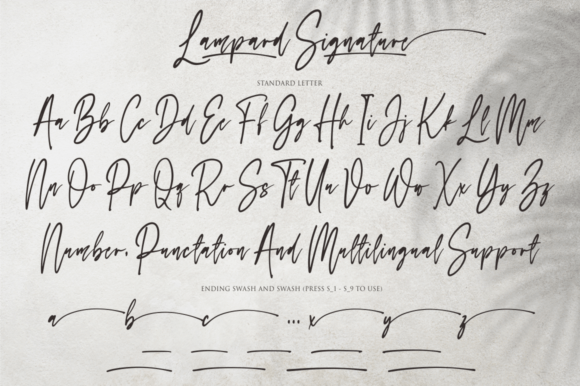 Lampard Signature
STANDARD LETTER
Aa Bb Cc Dd Ee Ff Gg Hh Ii Jj Kk Ll Mm
Nn Oo Pp Qq Rr Ss Tt Uu Vv Ww Xx Yy Zz
Number, Punctation And Multilingual Support
ENDING SWASH AND SWASH (PRESS S_1 - S_9 TO USE)
a b c ... x y z